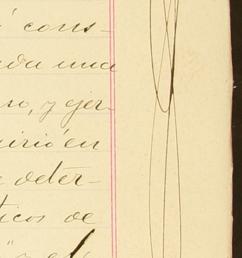 cons-
da una
so, y ejer-
uirió en
e deter-
ticos de